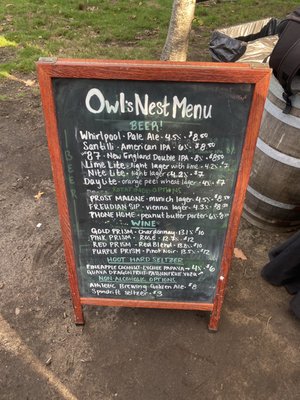 Owl's Nest Menu
BEER!
Whirlpool - Pale Ale - 4.5% - $8.50
Santilli - American IPA - 6% - $8.50
"87" - New England Double IPA - 8% - $8.50
Lime Lite - light lager with lime - 4.2% - $7
Nite Lite - light lager (4.2%) - $7
Daylite - orange peel wheat lager - 4% - $7
ROTATING OPTIONS
PROST MALONE - munich lager - 4.5%
FREUDIAN SIP - vienna lager -
PHONE HOME - peanut butter porter -
WINE
GOLD PRISM - Chardonnay - 13.1% $10
PINK PRISM - Rosé - 12.7% $12
RED PRISM - Red Blend - $10
PURPLE PRISM - Pinot Noir - 13.5% $12
HOOT HARD SELTZER
PINEAPPLE COCONUT - LYCHEE PAPAYA - 4% $6
GUAVA DRAGON FRUIT - PASSIONFRUIT YUZU
NON ALCOHOLIC OPTIONS
Athletic Brewing Golden Ale - $8
Spindrift Seltzer - $3